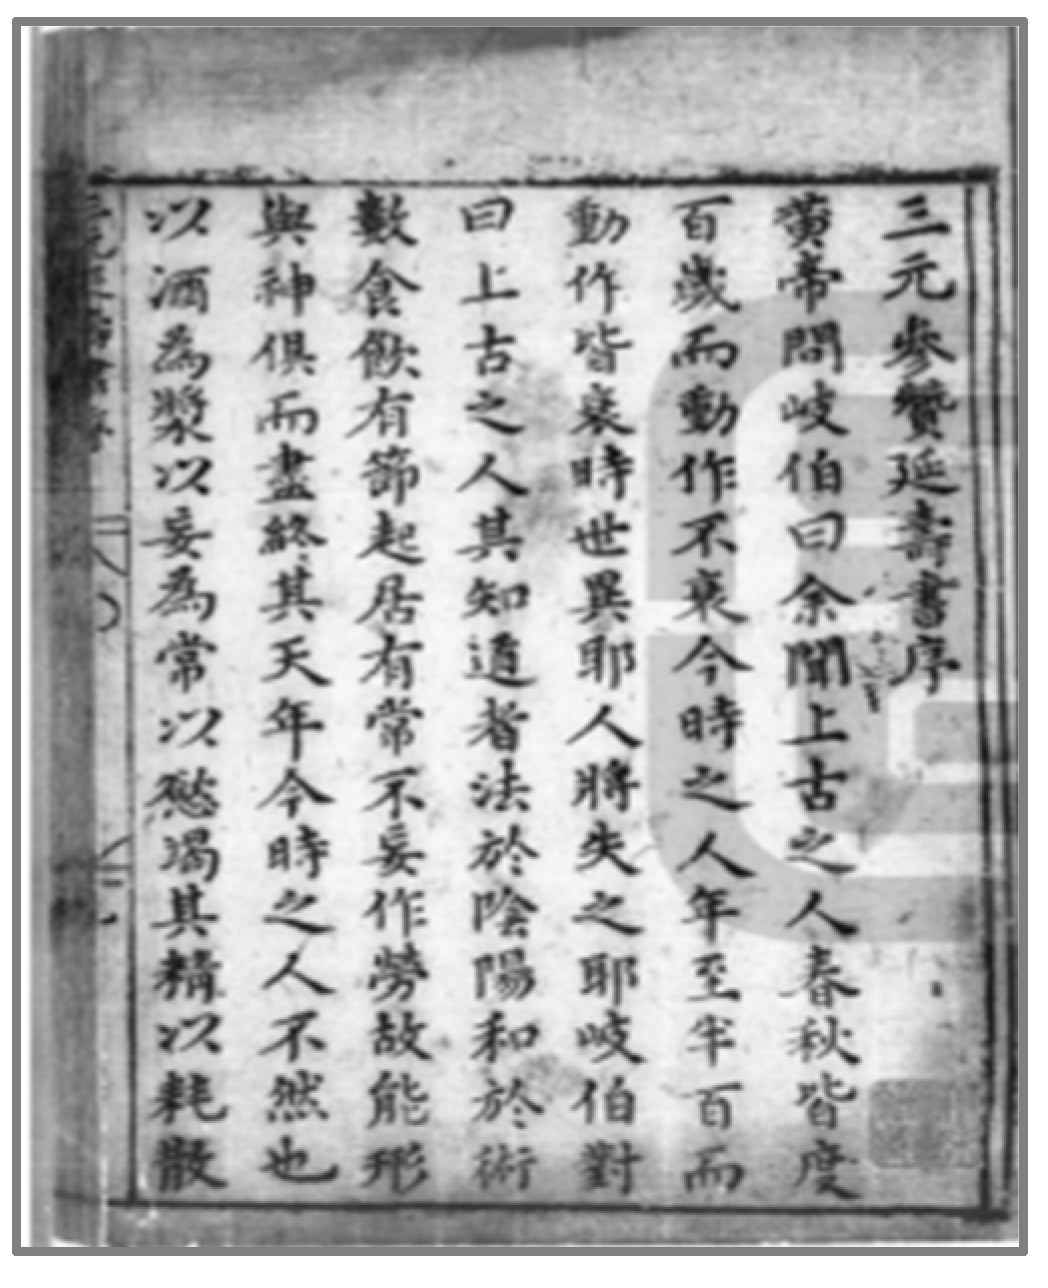 三元參贊延壽書序
黃帝問岐伯曰余聞上古之人春秋皆度
百歲而動作不衰今時之人年至半百而
動作皆衰時世異耶人將失之耶岐伯對
曰上古之人其知道者法於陰陽和於術
數食飲有節起居有常不妄作勞故能形
與神俱而盡終其天年今時之人不然也
以酒為漿以妄為常以慾竭其精以耗散